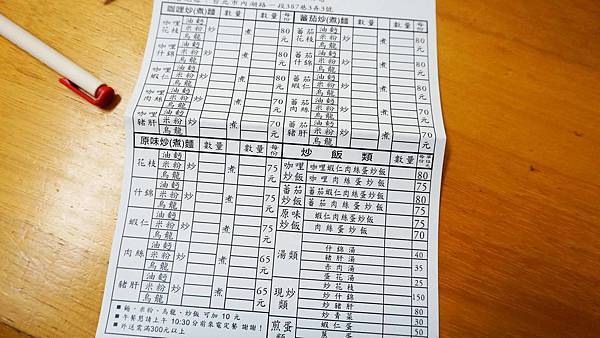 台北市內湖路一段387巷3弄3號
咖哩炒(煮)麵 數量 數量 每份
咖哩花枝 油麵 米粉 烏龍 炒 煮 80元
咖哩什錦 油麵 米粉 烏龍 炒 煮 80元
咖哩蝦仁 油麵 米粉 烏龍 炒 煮 80元
咖哩肉絲 油麵 米粉 烏龍 炒 煮 70元
咖哩豬肝 油麵 米粉 烏龍 炒 煮 70元
蕃茄炒(煮)麵 數量 數量 每份
蕃茄花枝 油麵 米粉 烏龍 炒 煮 80元
蕃茄什錦 油麵 米粉 烏龍 炒 煮 80元
蕃茄蝦仁 油麵 米粉 烏龍 炒 煮 80元
蕃茄肉絲 油麵 米粉 烏龍 炒 煮 70元
蕃茄豬肝 油麵 米粉 烏龍 炒 煮 70元
原味炒(煮)麵 數量 數量 每份
花枝 油麵 米粉 烏龍 炒 煮 75元
什錦 油麵 米粉 烏龍 炒 煮 75元
蝦仁 油麵 米粉 烏龍 炒 煮 75元
肉絲 油麵 米粉 烏龍 炒 煮 65元
豬肝 油麵 米粉 烏龍 炒 煮 65元
■ 麵、米粉、烏龍、炒飯 可加 10 元
■ 午餐想請上午 10:30分前來電定餐 謝謝!
■ 外送需滿300元以上
炒飯類 數量 每份
咖哩炒飯 咖哩蝦仁肉絲蛋炒飯 80
咖哩肉絲蛋炒飯 75
蕃茄炒飯 蕃茄蝦仁肉絲蛋炒飯 80
蕃茄肉絲蛋炒飯 75
原味炒飯 蝦仁肉絲蛋炒飯 75
肉絲蛋炒飯 70
湯類 什錦湯 40
豬肝湯
赤肉湯 35
蛋花湯 25
現炒類 炒花枝
炒什錦 150
炒豬肝
炒青菜 30
煎蛋類 蝦仁蛋 50